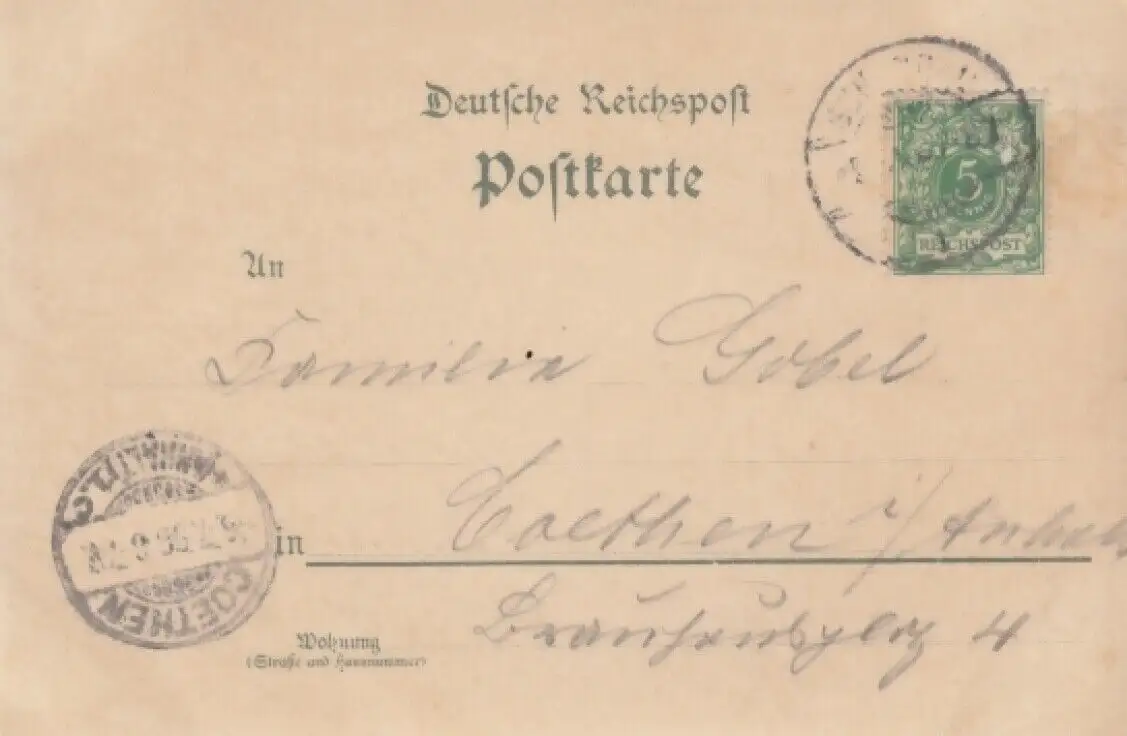 Deutsche Reichspost
Postkarte
5
PFENNIG
REICHSPOST
An
Familie Göbel
in Coethen i/Anhalt
Brauhausplatz 4
COETHEN
Wohnung
(Straße und Hausnummer)